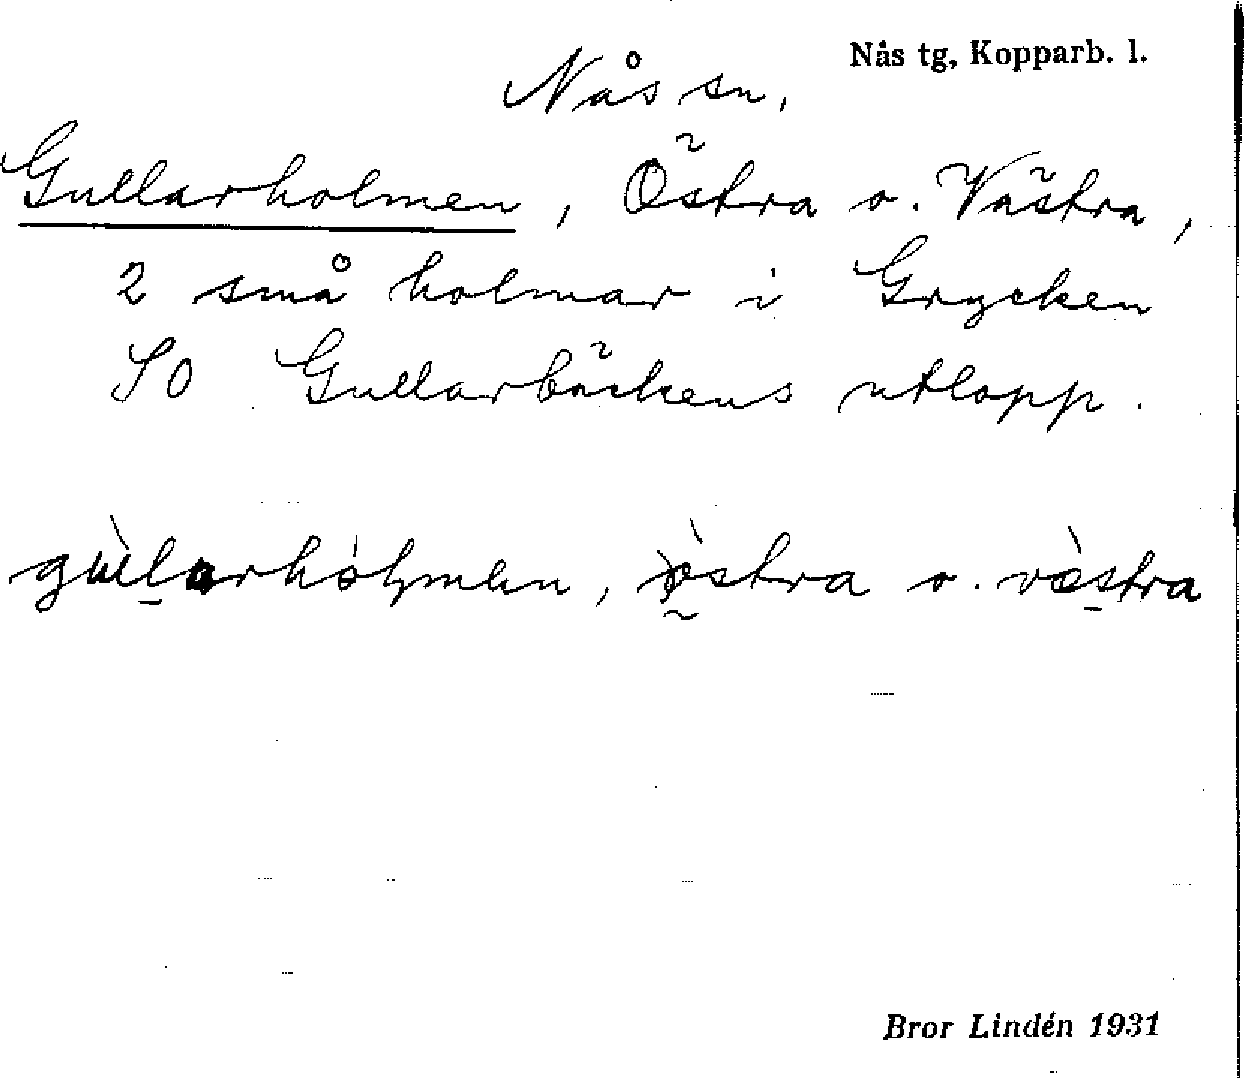 Nås tg, Kopparb. l.
Nås sn,
Gullarholmen, Östra o. Västra,
2 små holmar i Grycken
SO Gullarbäckens utlopp.
gùlarhólmen, òstra o. vàstra
Bror Lindén 1931